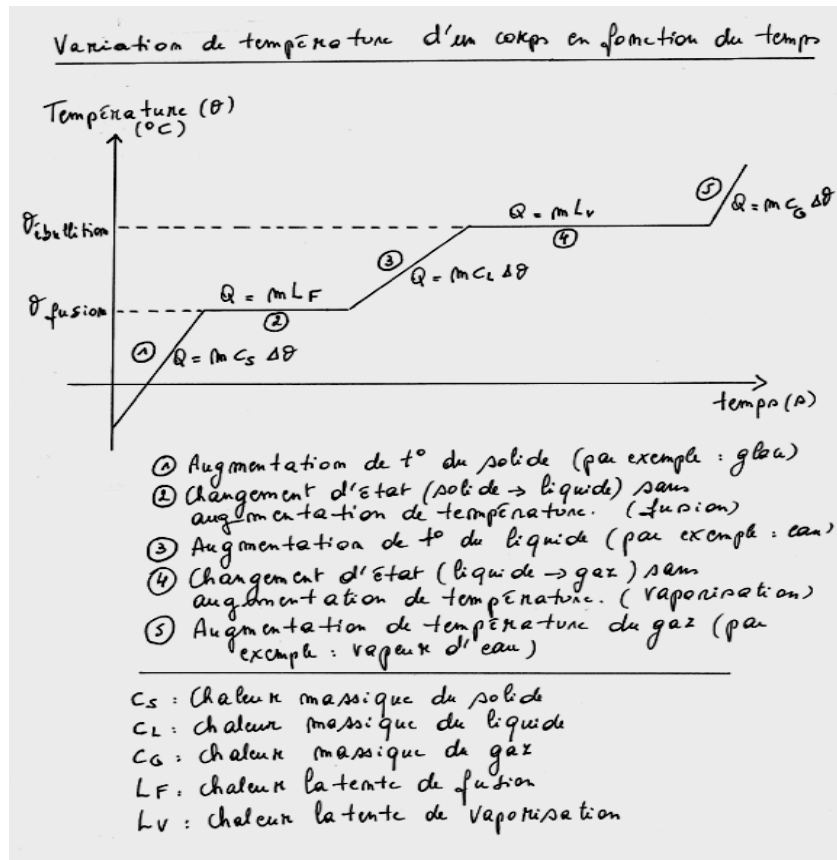 Variation de température d'un corps en fonction du temps
Température (θ)
(°C)
θébullition
θfusion
① Q = m Cs Δθ
Q = m LF
②
③ Q = m CL Δθ
Q = m Lv
④
⑤ Q = m CG Δθ
temps (s)
① Augmentation de t° du solide (par exemple : glace)
② Changement d'état (solide → liquide) sans
augmentation de température. (fusion)
③ Augmentation de t° du liquide (par exemple : eau)
④ Changement d'état (liquide → gaz) sans
augmentation de température. (vaporisation)
⑤ Augmentation de température du gaz (par
exemple : vapeur d'eau)
Cs : Chaleur massique du solide
CL : chaleur massique du liquide
CG : chaleur massique du gaz
LF : chaleur latente de fusion
Lv : chaleur latente de vaporisation